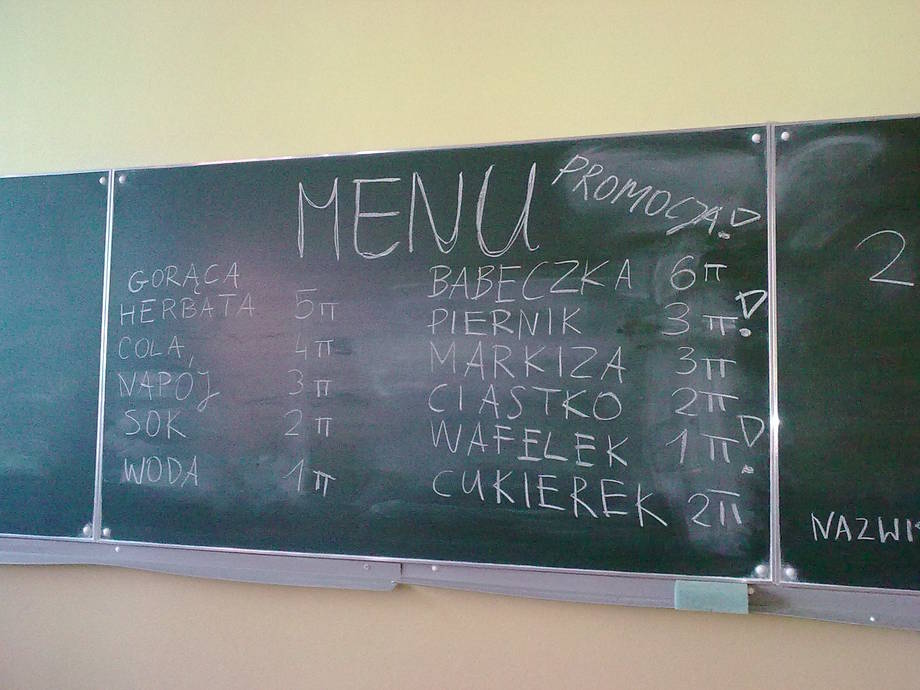 MENU
PROMOCJA!
GORĄCA
HERBATA 5π
COLA, 4π
NAPÓJ 3π
SOK 2π
WODA 1π
BABECZKA 6π
PIERNIK 3π!
MARKIZA 3π
CIASTKO 2π
WAFELEK 1π!
CUKIEREK 2π
2
NAZWIS